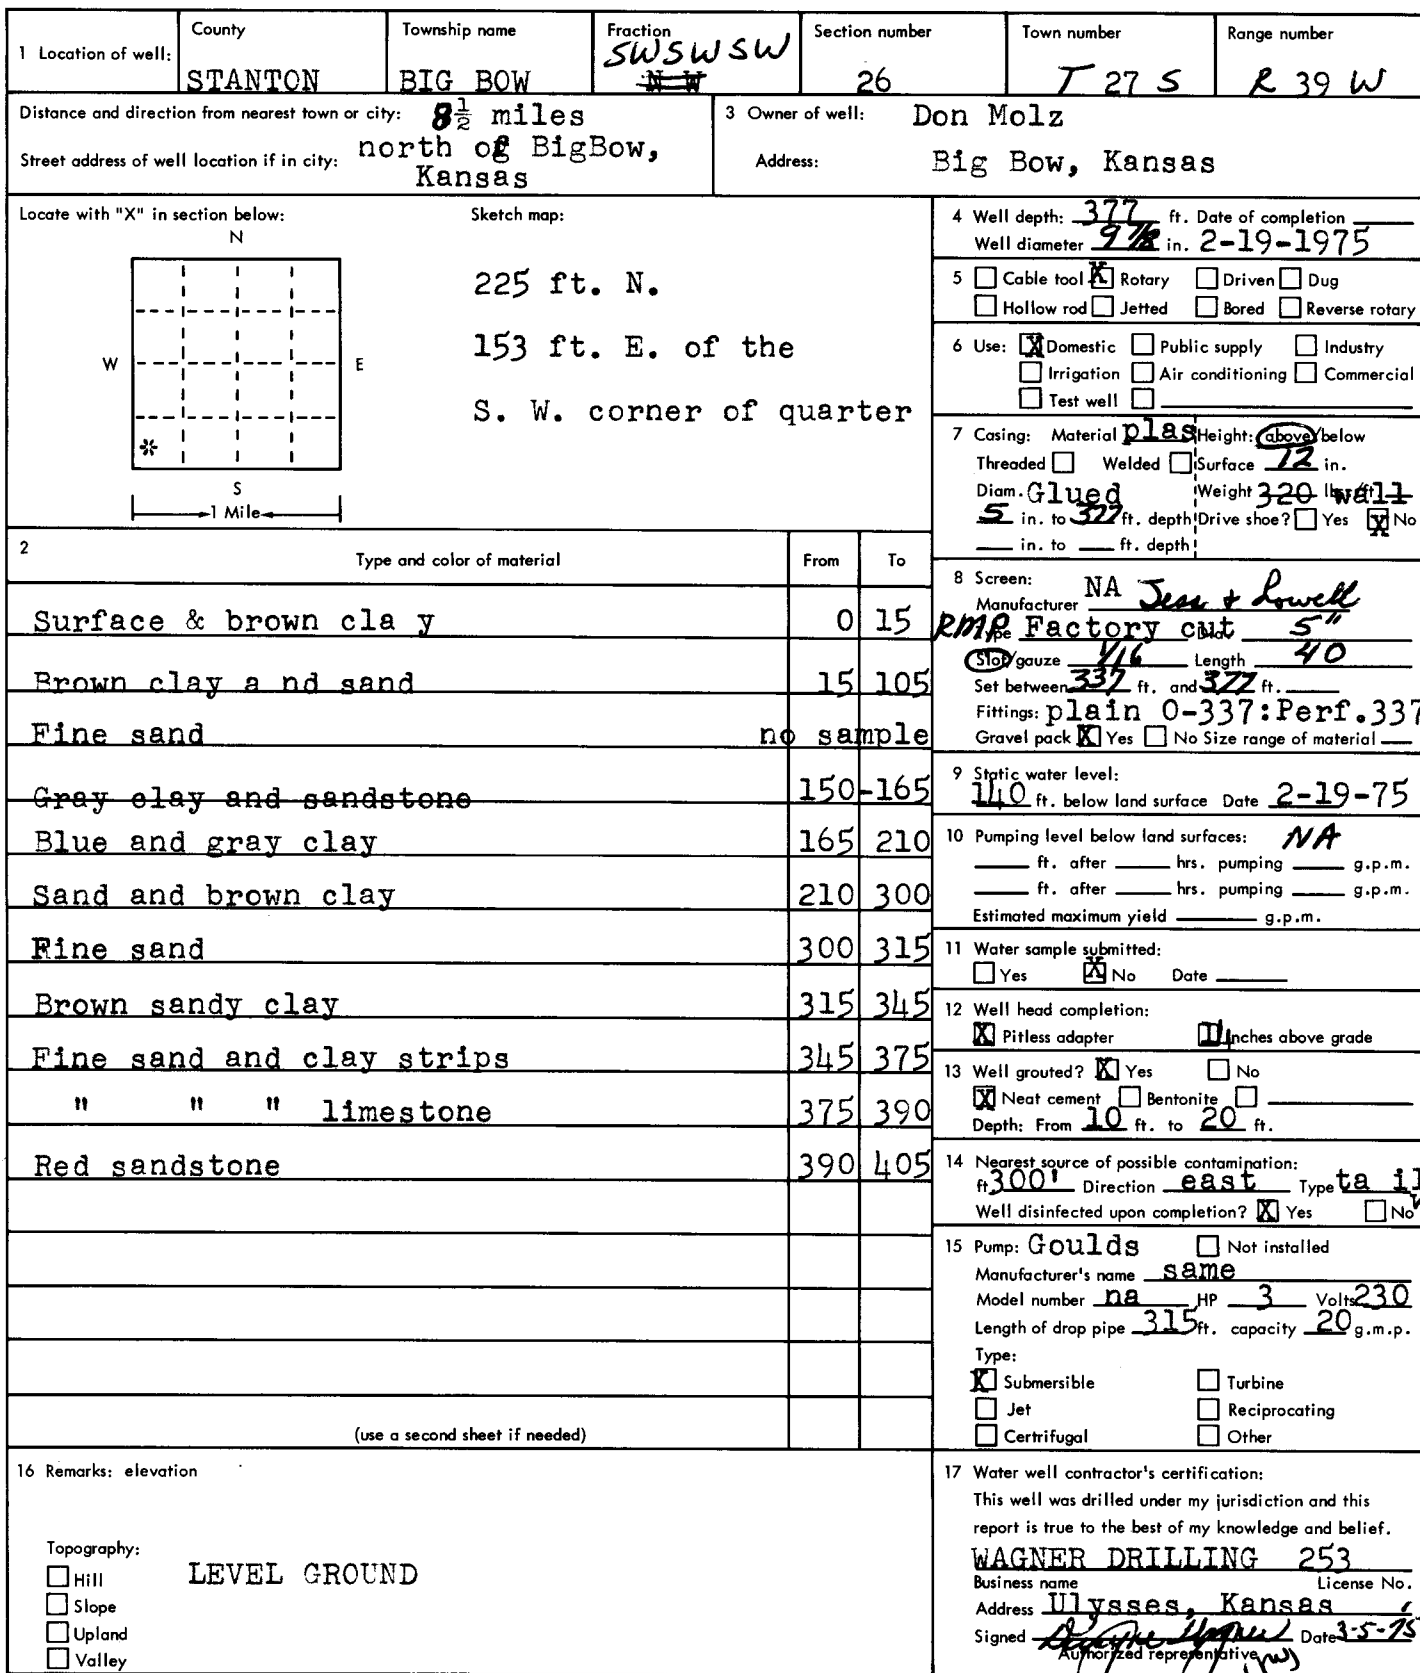 1 Location of well:
County
STANTON
Township name
BIG BOW
Fraction
SW SW SW
N W
Section number
26
Town number
T 27 S
Range number
R 39 W
Distance and direction from nearest town or city: 8½ miles
north of BigBow,
Kansas
Street address of well location if in city:
3 Owner of well: Don Molz
Address: Big Bow, Kansas
Locate with "X" in section below:
N
W
E
S
1 Mile
Sketch map:
225 ft. N.
153 ft. E. of the
S. W. corner of quarter
2 Type and color of material From To
Surface & brown cla y 0 15
Brown clay a nd sand 15 105
Fine sand no sample
Gray clay and sandstone 150-165
Blue and gray clay 165 210
Sand and brown clay 210 300
Fine sand 300 315
Brown sandy clay 315 345
Fine sand and clay strips 345 375
" " " limestone 375 390
Red sandstone 390 405
(use a second sheet if needed)
4 Well depth: 377 ft. Date of completion
Well diameter 9 7/8 in. 2-19-1975
5 Cable tool X Rotary Driven Dug
Hollow rod Jetted Bored Reverse rotary
6 Use: X Domestic Public supply Industry
Irrigation Air conditioning Commercial
Test well
7 Casing: Material plas Height: above/below
Threaded Welded Surface 12 in.
Diam. Glued Weight 320 lbs/ft wall
5 in. to 377 ft. depth Drive shoe? Yes X No
in. to ft. depth
8 Screen: NA
Manufacturer Jess + Lowell
RMP Type Factory cut Dia. 5"
Slot/gauze 1/16 Length 40
Set between 337 ft. and 377 ft.
Fittings: plain 0-337:Perf.337
Gravel pack X Yes No Size range of material
9 Static water level:
140 ft. below land surface Date 2-19-75
10 Pumping level below land surfaces: NA
ft. after hrs. pumping g.p.m.
ft. after hrs. pumping g.p.m.
Estimated maximum yield g.p.m.
11 Water sample submitted:
Yes X No Date
12 Well head completion:
X Pitless adapter Inches above grade
13 Well grouted? X Yes No
X Neat cement Bentonite
Depth: From 10 ft. to 20 ft.
14 Nearest source of possible contamination:
ft. 300' Direction east Type ta il
Well disinfected upon completion? X Yes No
15 Pump: Goulds Not installed
Manufacturer's name same
Model number na HP 3 Volts 230
Length of drop pipe 315 ft. capacity 20 g.m.p.
Type:
X Submersible Turbine
Jet Reciprocating
Certrifugal Other
16 Remarks: elevation
Topography:
Hill LEVEL GROUND
Slope
Upland
Valley
17 Water well contractor's certification:
This well was drilled under my jurisdiction and this
report is true to the best of my knowledge and belief.
WAGNER DRILLING 253
Business name License No.
Address Ulysses, Kansas
Signed Date 3-5-75
Authorized representative